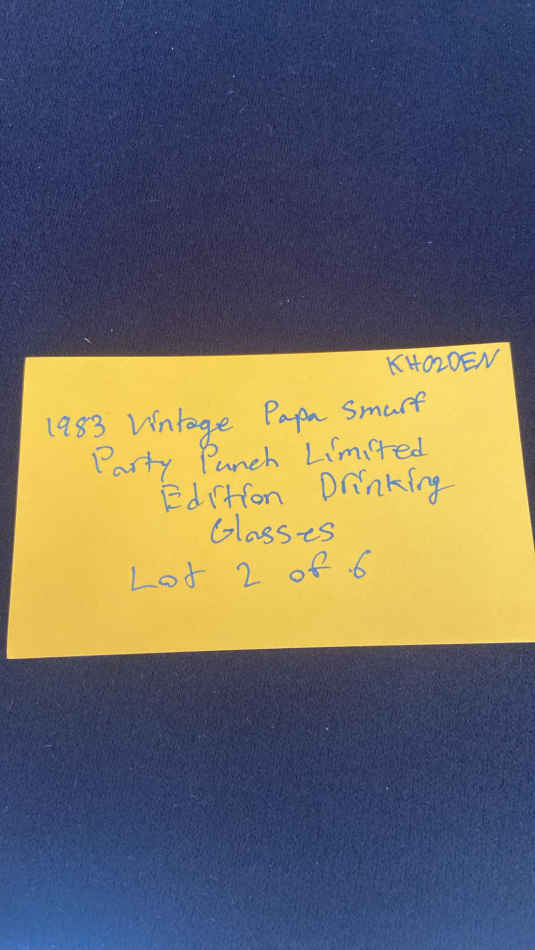 KHOZDEN
1983 Vintage Papa Smurf
Party Punch Limited
Edition Drinking
Glasses
Lot 2 of 6